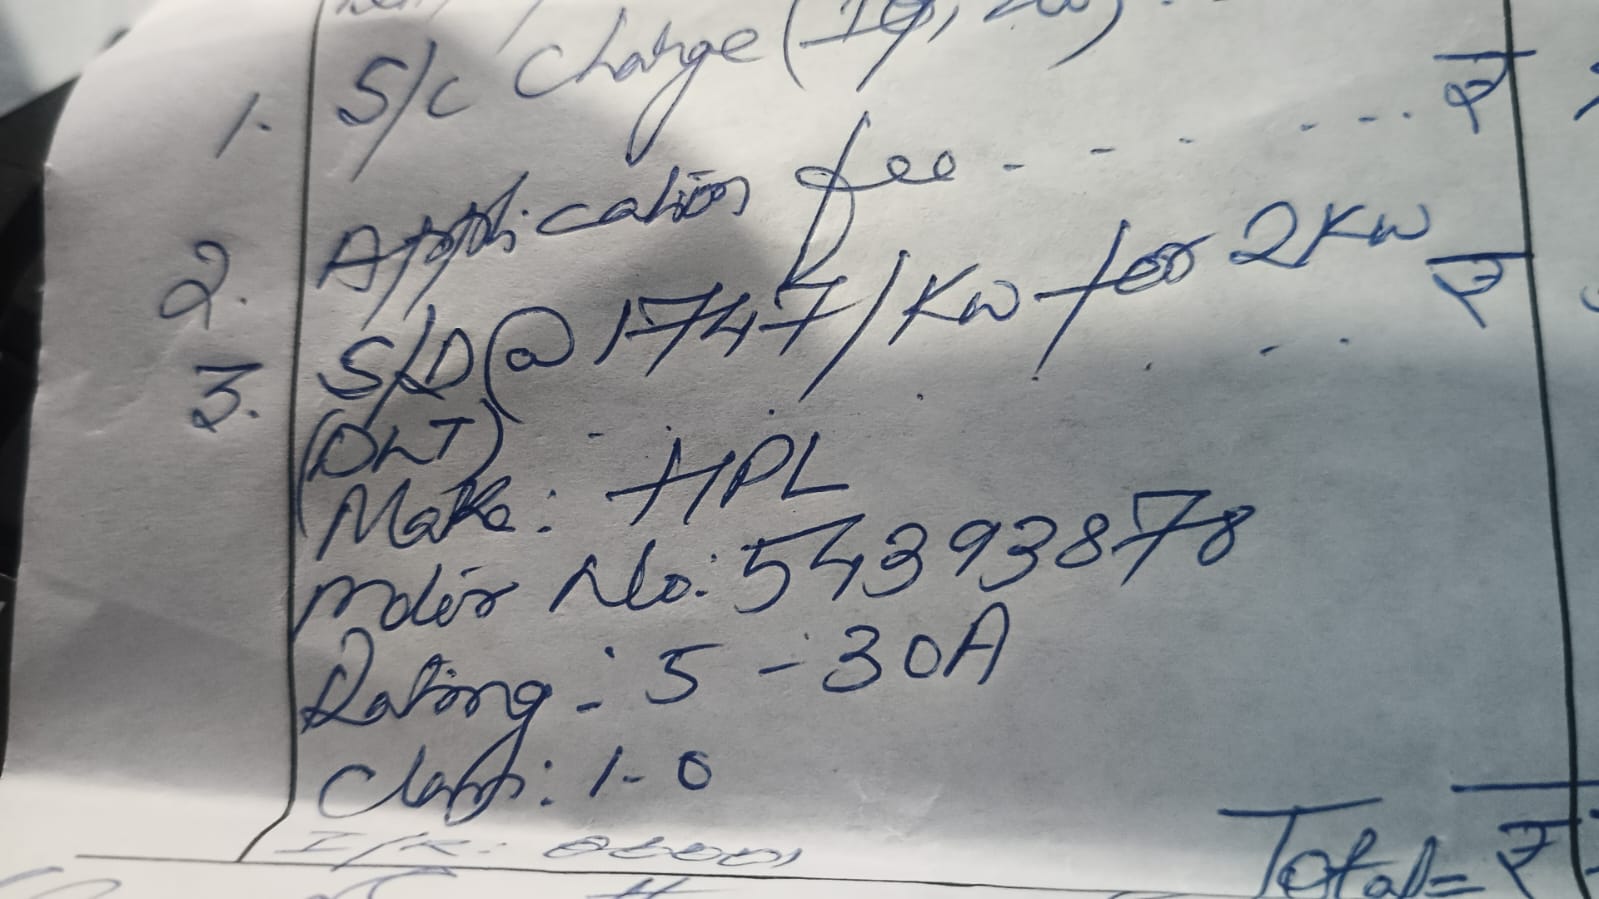 1. S/C Charge (1φ,
2. Application fee - - - - - - ₹
3. S/D @ 1747/KW for 2KW ₹
(DLT) - - - - - - -
Make: HPL
Meter No: 54393878
Rating: 5-30A
Class: 1.0
I/R: 00001
Total = ₹